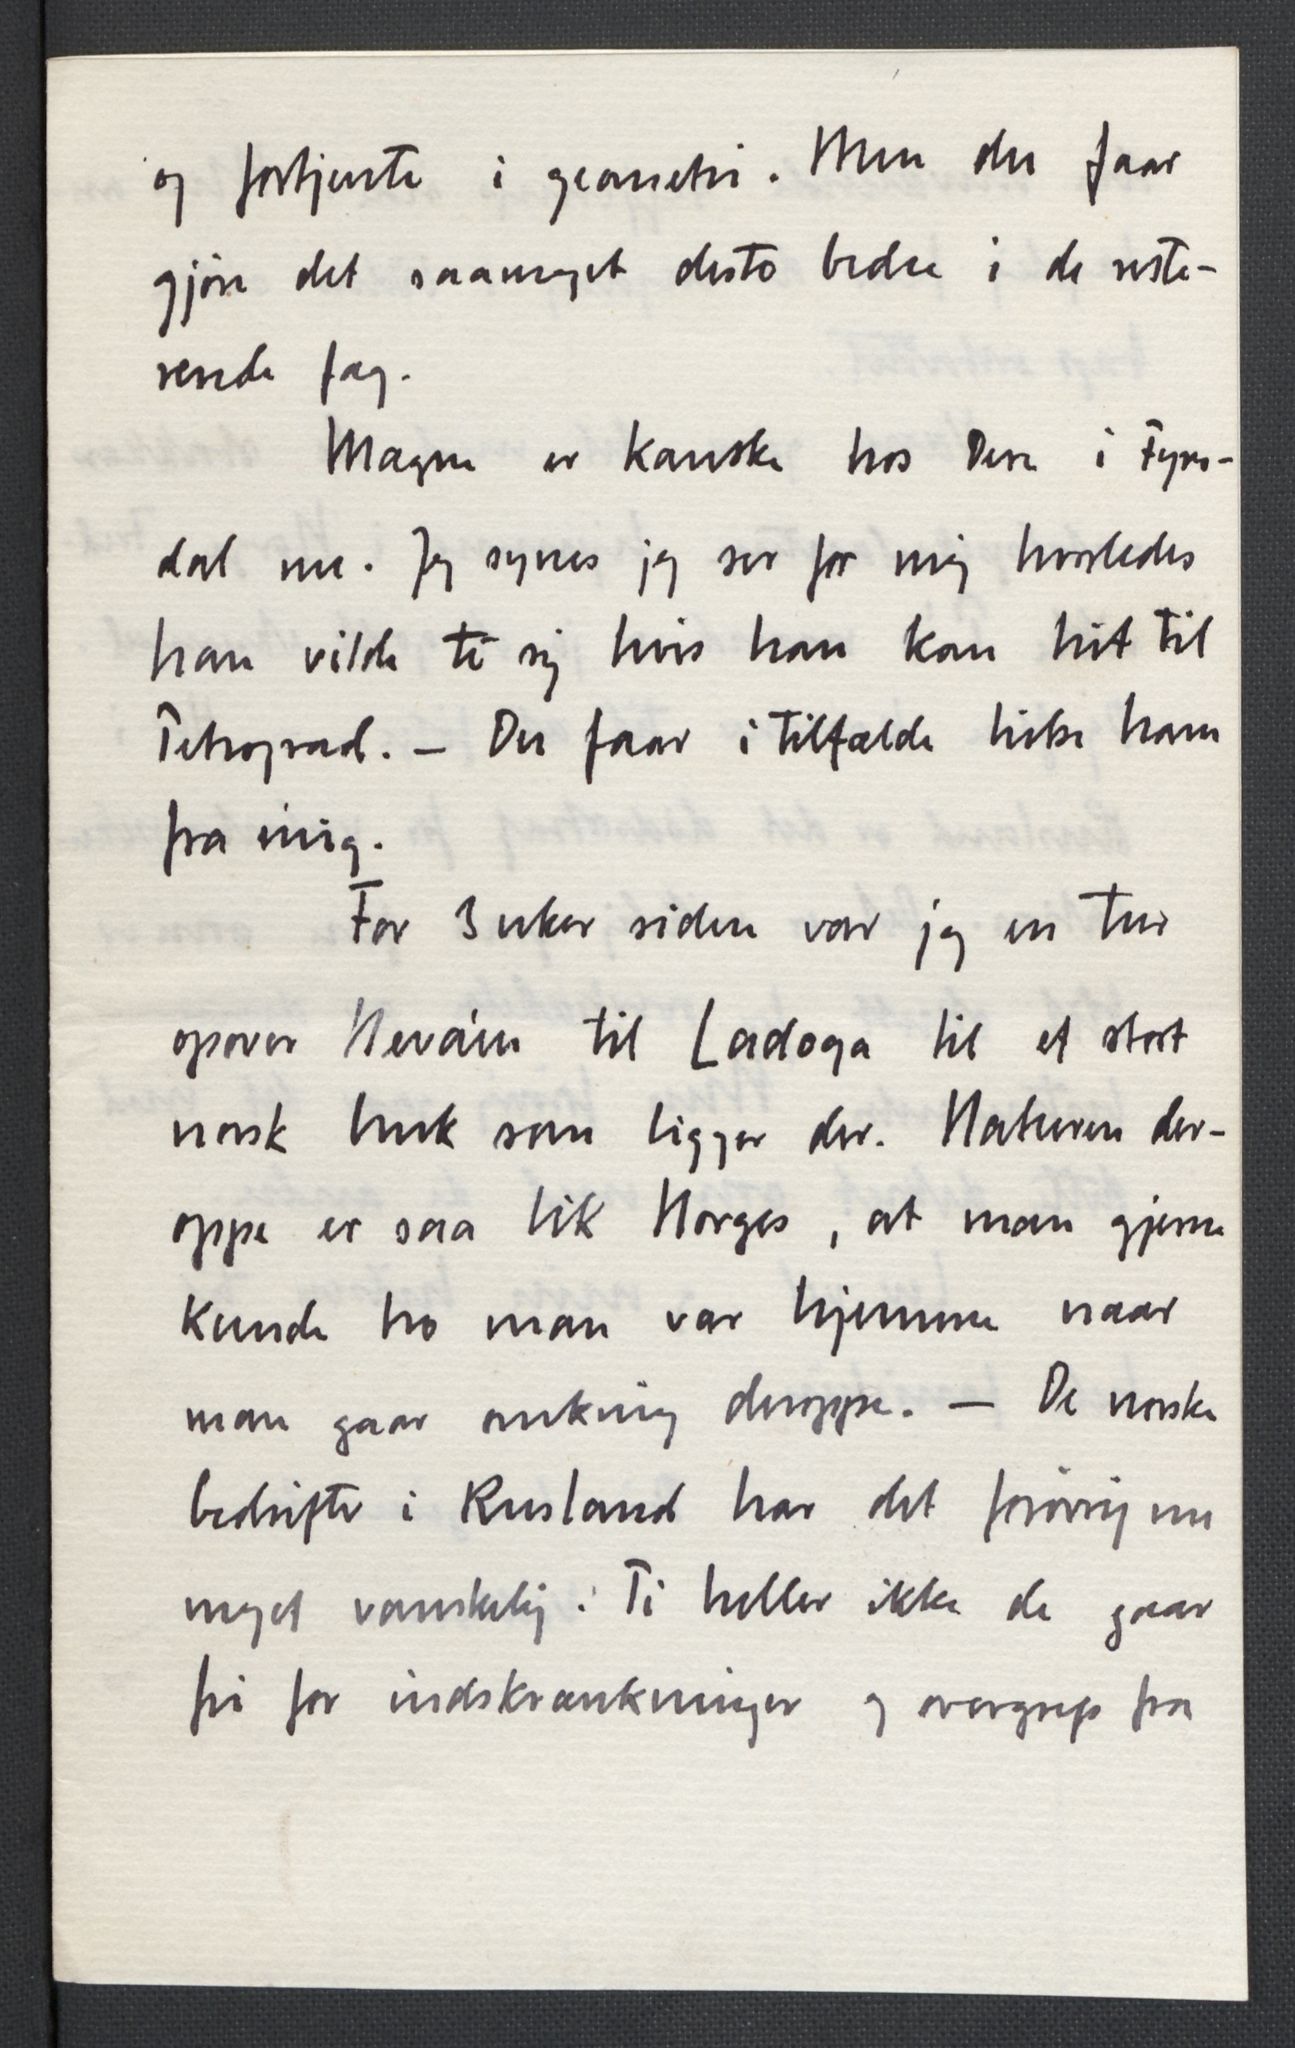 og fortjente i geometri. Men du faar
gjöre det saameget desto bedre i de reste-
rende fag.
Magne er kanske hos Dere i Fyres-
dal nu. Jeg synes jeg ser for mig hvorledes
han vilde te sig hvis han kom hit til
Petrograd. — Du faar i tilfælde hilse ham
fra mig.
For 3 uker siden var jeg en tur
opover Nevaen til Ladoga til et stort
norsk bruk som ligger der. Naturen der-
oppe er saa lik Norges, at man gjerne
kunde tro man var hjemme naar
man gaar omkring deroppe. — De norske
bedrifter i Rusland har det forövrig nu
meget vanskelig. Ti heller ikke de gaar
fri for indskrænkninger og overgrep fra